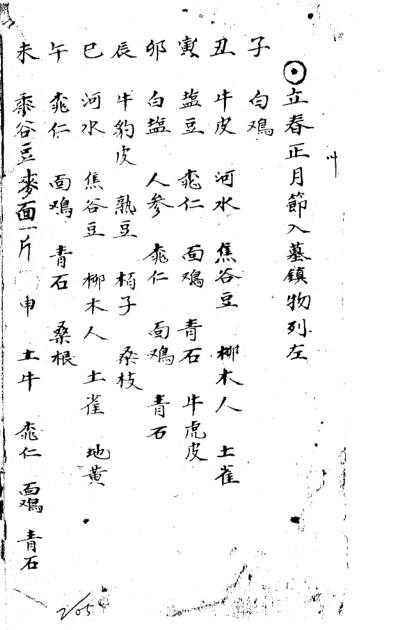 立春正月節入墓鎮物列左
子 白鳮
丑 牛皮 河水 焦谷豆 柳木人 土雀
寅 塩豆 桃仁 面鳮 青石 牛虎皮
卯 白塩 人参 桃仁 面鳮 青石
辰 牛豹皮 熟豆 栢子 桑枝
巳 河水 焦谷豆 柳木人 土雀 地黄
午 桃仁 面鳮 青石 桑根
未 黍谷豆麥面一片 申 土牛 桃仁 面鳮 青石
205